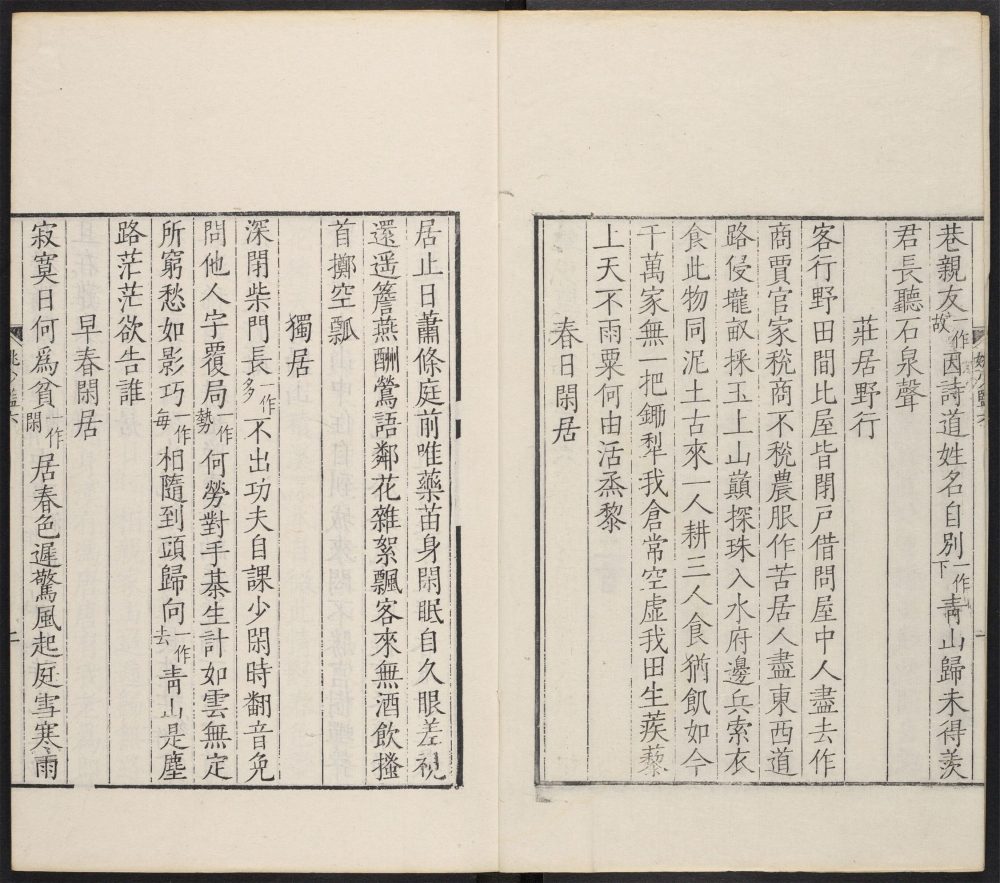 巷親友一作故因詩道姓名自別一作下青山歸未得羨
君長聽石泉聲
莊居野行
客行野田間比屋皆閉戶借問屋中人盡去作
商賈官家稅商不稅農服作苦居人盡東西道
路侵壠畝採玉上山巔探珠入水府邊兵索衣
食此物同泥土古來一人耕三人食猶飢如今
千萬家無一把鋤犁我倉常空虛我田生蒺藜
上天不雨粟何由活烝黎
春日閑居
居止日蕭條庭前唯藥苗身閑眠自久眼差視
還遥簷燕酬鶯語鄰花雜絮飄客來無酒飲搔
首擲空瓢
獨居
深閉柴門長一作多不出功夫自課少閑時翻音免
問他人字覆局一作勢何勞對手棊生計如雲無定
所窮愁如影巧一作每相隨到頭歸向一作去青山是塵
路茫茫欲告誰
早春閑居
寂寞日何爲貧一作閑居春色遲驚風起庭雪寒雨
二